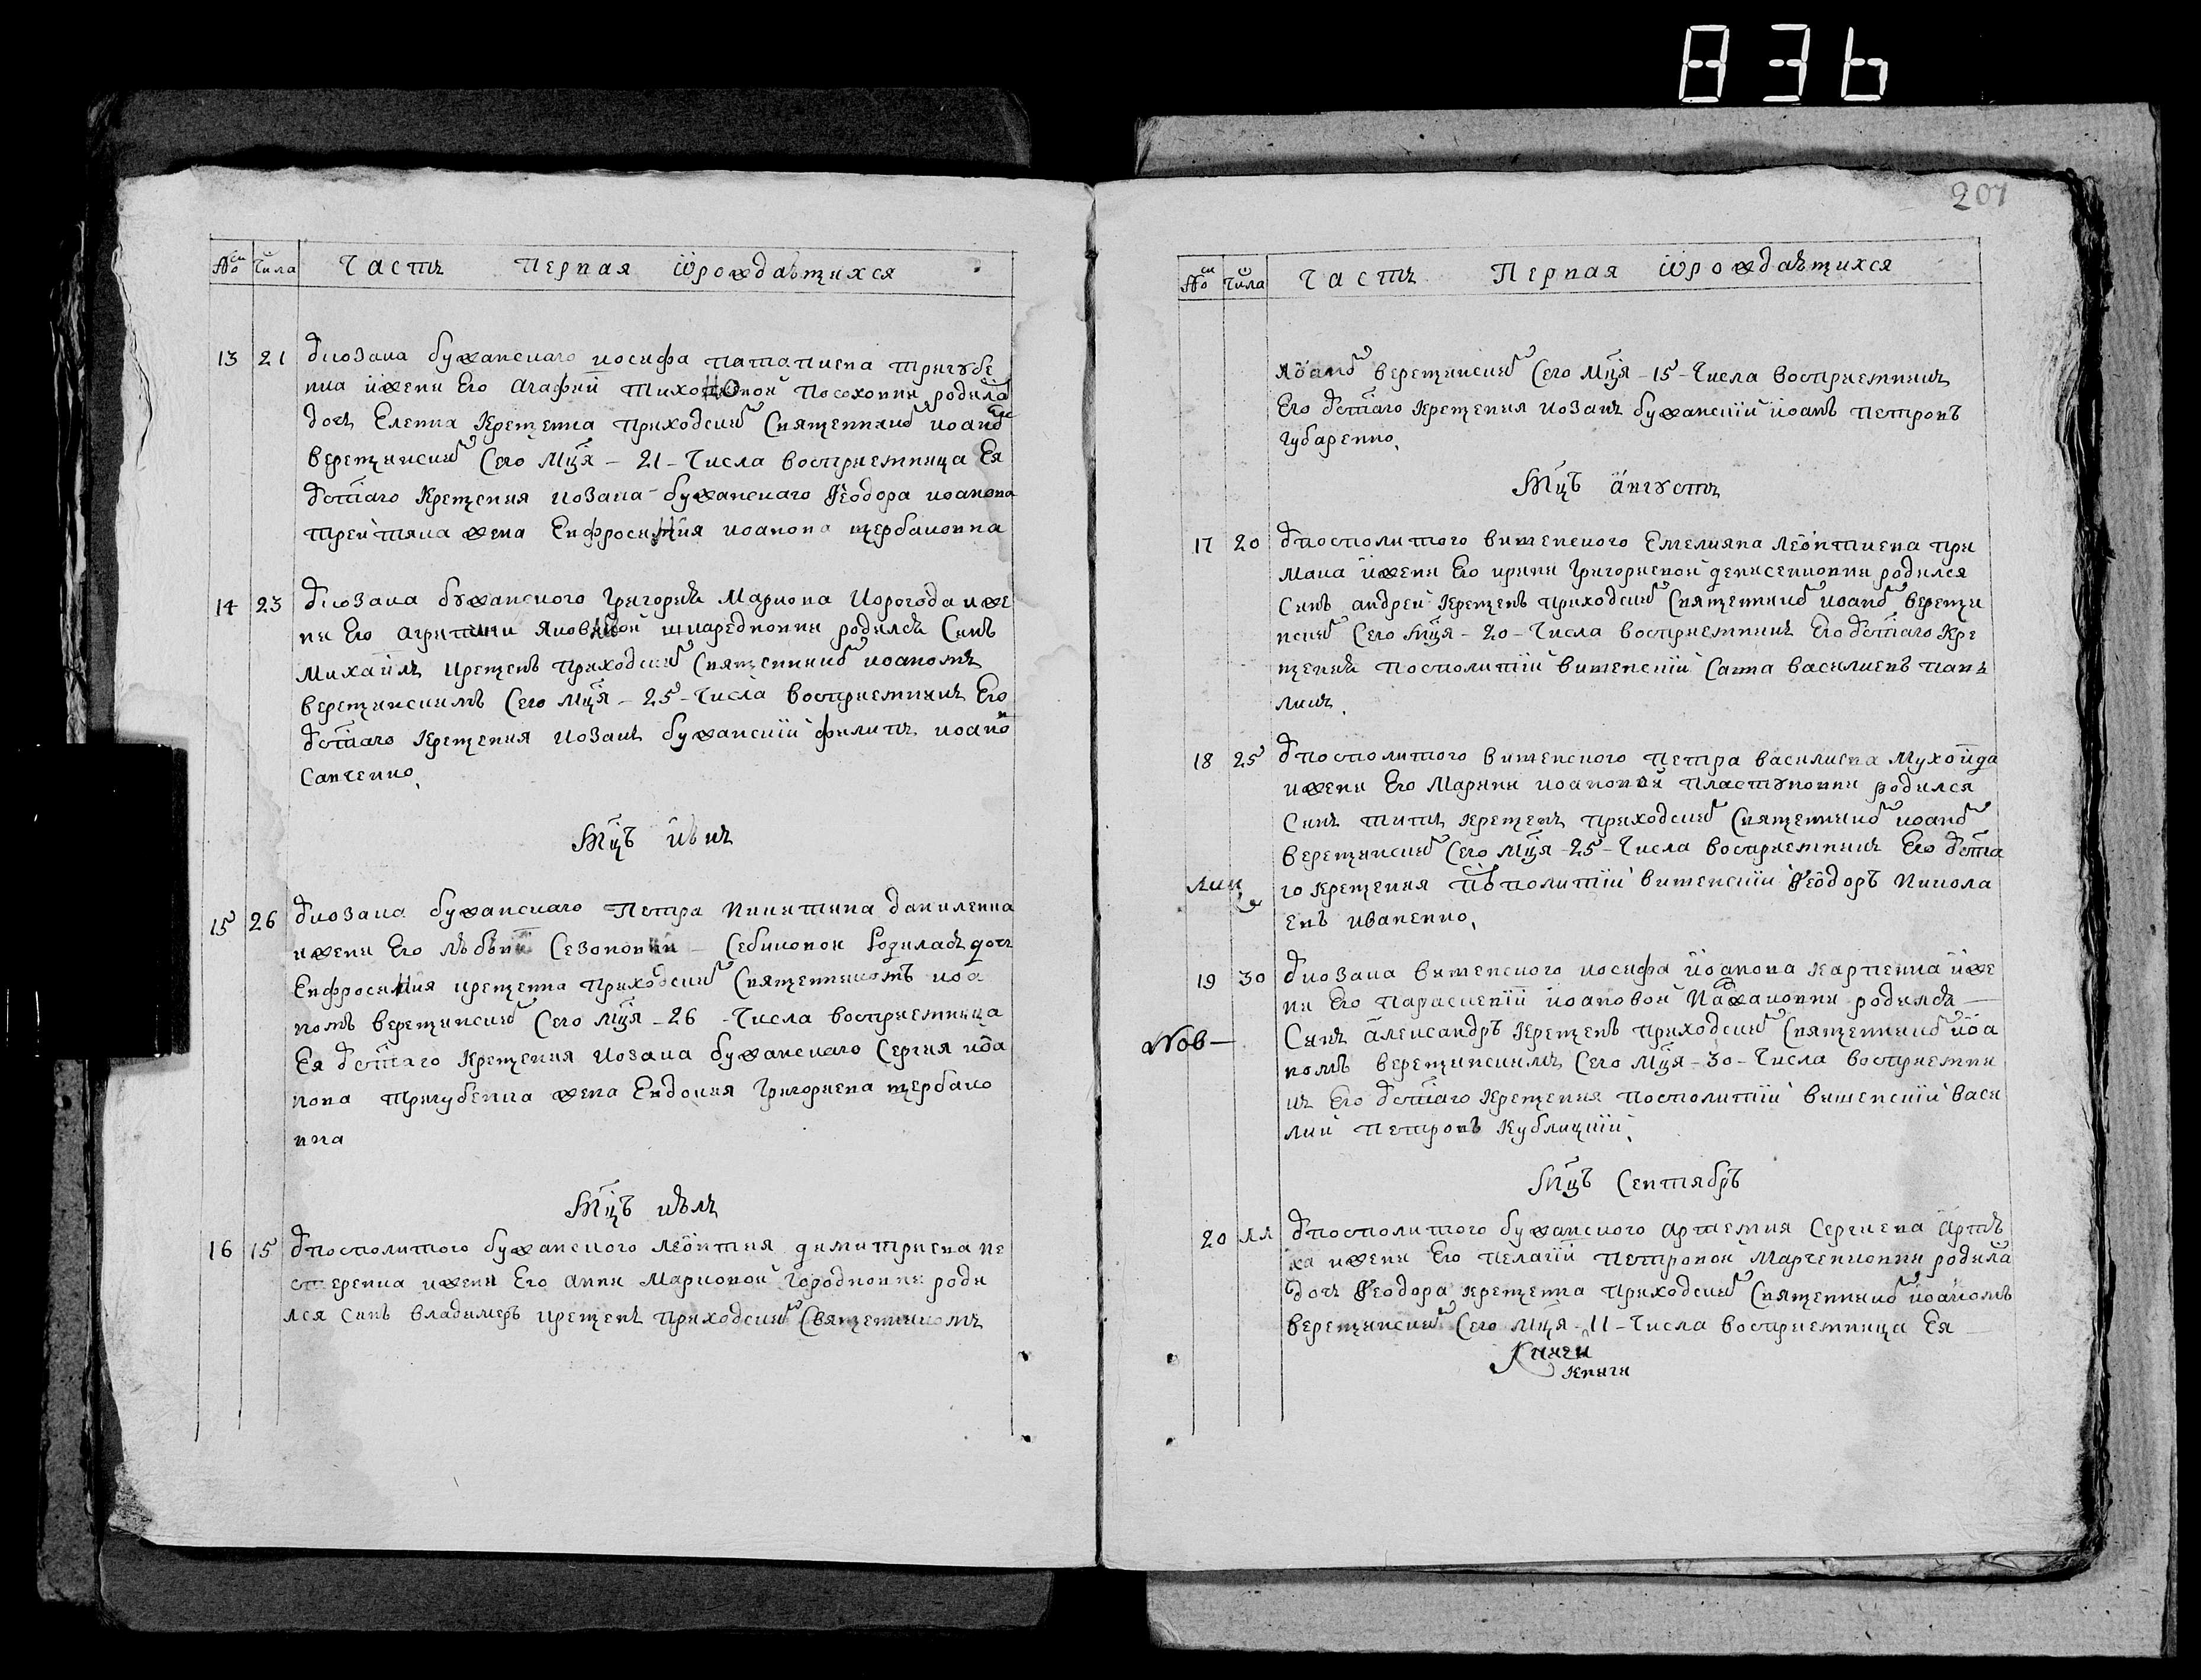 836
207
№ Числа Часть Первая ѿрождающихся
13 21 ѿкозака бужанского иосифа патапиева тригубе
нка ижени Его агафий тихоновой Посохонни родила
дочь Еленна Крещенна приходским Священником иоаном
верещинским Сего Мця – 21 – Числа восприемница Ея
ѿстаго Крещения козака бужанского Ѳеодора иоанова
трейтяка жена Ефросиния иоанова щербаковна
14 23 ѿкозака бужанского григория Маркова Корогода иже
ни Его агрипини яковлвой шкаредковни родился Синъ
Михаилъ крещенъ приходским Священником иоаномъ
верещинскимъ Сего Мця – 25 – Числа восприемникъ Его
ѿстаго Крещения козакъ бужанский филипъ иоанов
Санченко.
Мцъ июнь
15 26 ѿкозака бужанского Петра Никитина даниленка
ижени Его любви Сезоновни – Себиковой Родилась дочь
Ефросиния крещенна приходским Священникомъ иоа
номъ верещинским Сего Мця – 26 – Числа восприемница
Ея ѿстаго Крещения козака бужанского Сергия иоа
нова тригубенка жена Евдокия григориева щербако
вна
Мцъ июль
16 15 ѿпосполитого бужанского леонтия димитриева не
стеренка ижени Его анни Марковой городковни роди
лся Синъ владимеръ крещенъ приходским Священникомъ
№ Числа Часть Первая ѿрождающихся
иоаном верещинским Сего Мця – 15 – Числа восприемникъ
Его ѿстаго Крещения козакъ бужанский иоанъ петровъ
губаренко.
Мцъ августъ
17 20 ѿпосполитого витенского Емелияна леонтиева при
мака ижени Его ирини григориевой денисенковни родился
Синъ андрей Крещенъ приходским Священником иоаном верещи
нским Сего Мця – 20 – Числа восприемникъ Его ѿстаго Кре
щения посполитий витенский Савва василиевъ пань
ликъ.
18 25 ѿпосполитого витенского петра василиева Мухоида
ижени Его Марини иоановой пластуновни родился
Синъ титъ Крещенъ приходским Священником иоаном
верещинским Сего Мця – 25 – Числа восприемникъ Его ѿста
го крещения посполитий витенский Ѳеодоръ Никола
евъ иваненко.
19 30 ѿкозака витенского иосифа иоанова карпенка иже
ни Его параскевий иоановой родился –
Nов – Синъ александръ Крещенъ приходским Священником иоа
номъ верещинскимъ Сего Мця – 30 – Числа восприемни
къ Его ѿстаго Крещения посполитий витенский Васи
лий петровъ Кублицкий.
Мцъ Сентябръ
20 11 ѿпосполитого бужанского артемия Сергиева артю
ха ижени Его пелагий петровой Марченковни родила
дочь Ѳеодора крещенна приходским Священником иоаномъ
верещинским Сего Мця – 11 – Числа восприемница Ея
Книги
книги